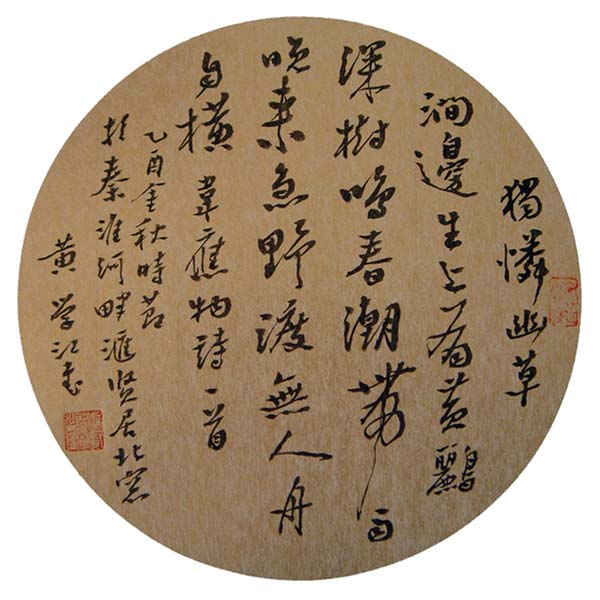 獨憐幽草
澗邊生上有黃鸝
深樹鳴春潮帶雨
晚來急野渡無人舟
自橫 韋應物詩一首
乙酉金秋時節
於秦淮河畔滙賢居北窓
黄学江書